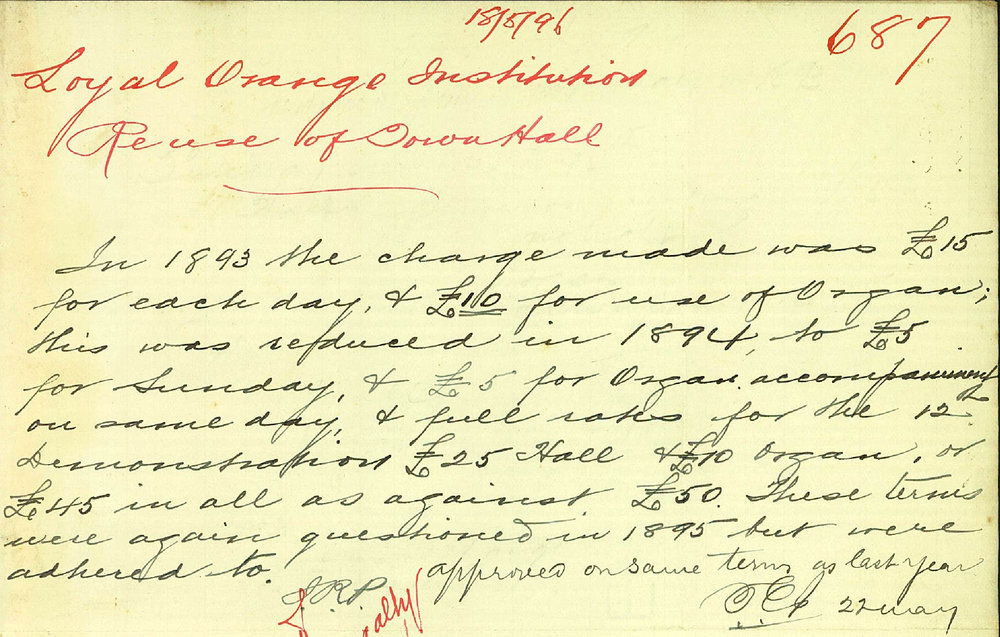 18/5/96
687
Loyal Orange Institution
Re use of Town Hall
In 1893 the charge made was £15
for each day, & £10 for use of Organ;
this was reduced in 1894, to £5
for Sunday, & £5 for Organ accompaniment
on same day, & full rates for the 12th
Demonstration £25 Hall & £10 Organ, or
£45 in all as against £50. These terms
were again questioned in 1895 but were
adhered to.
approved on same terms as last year
22 May